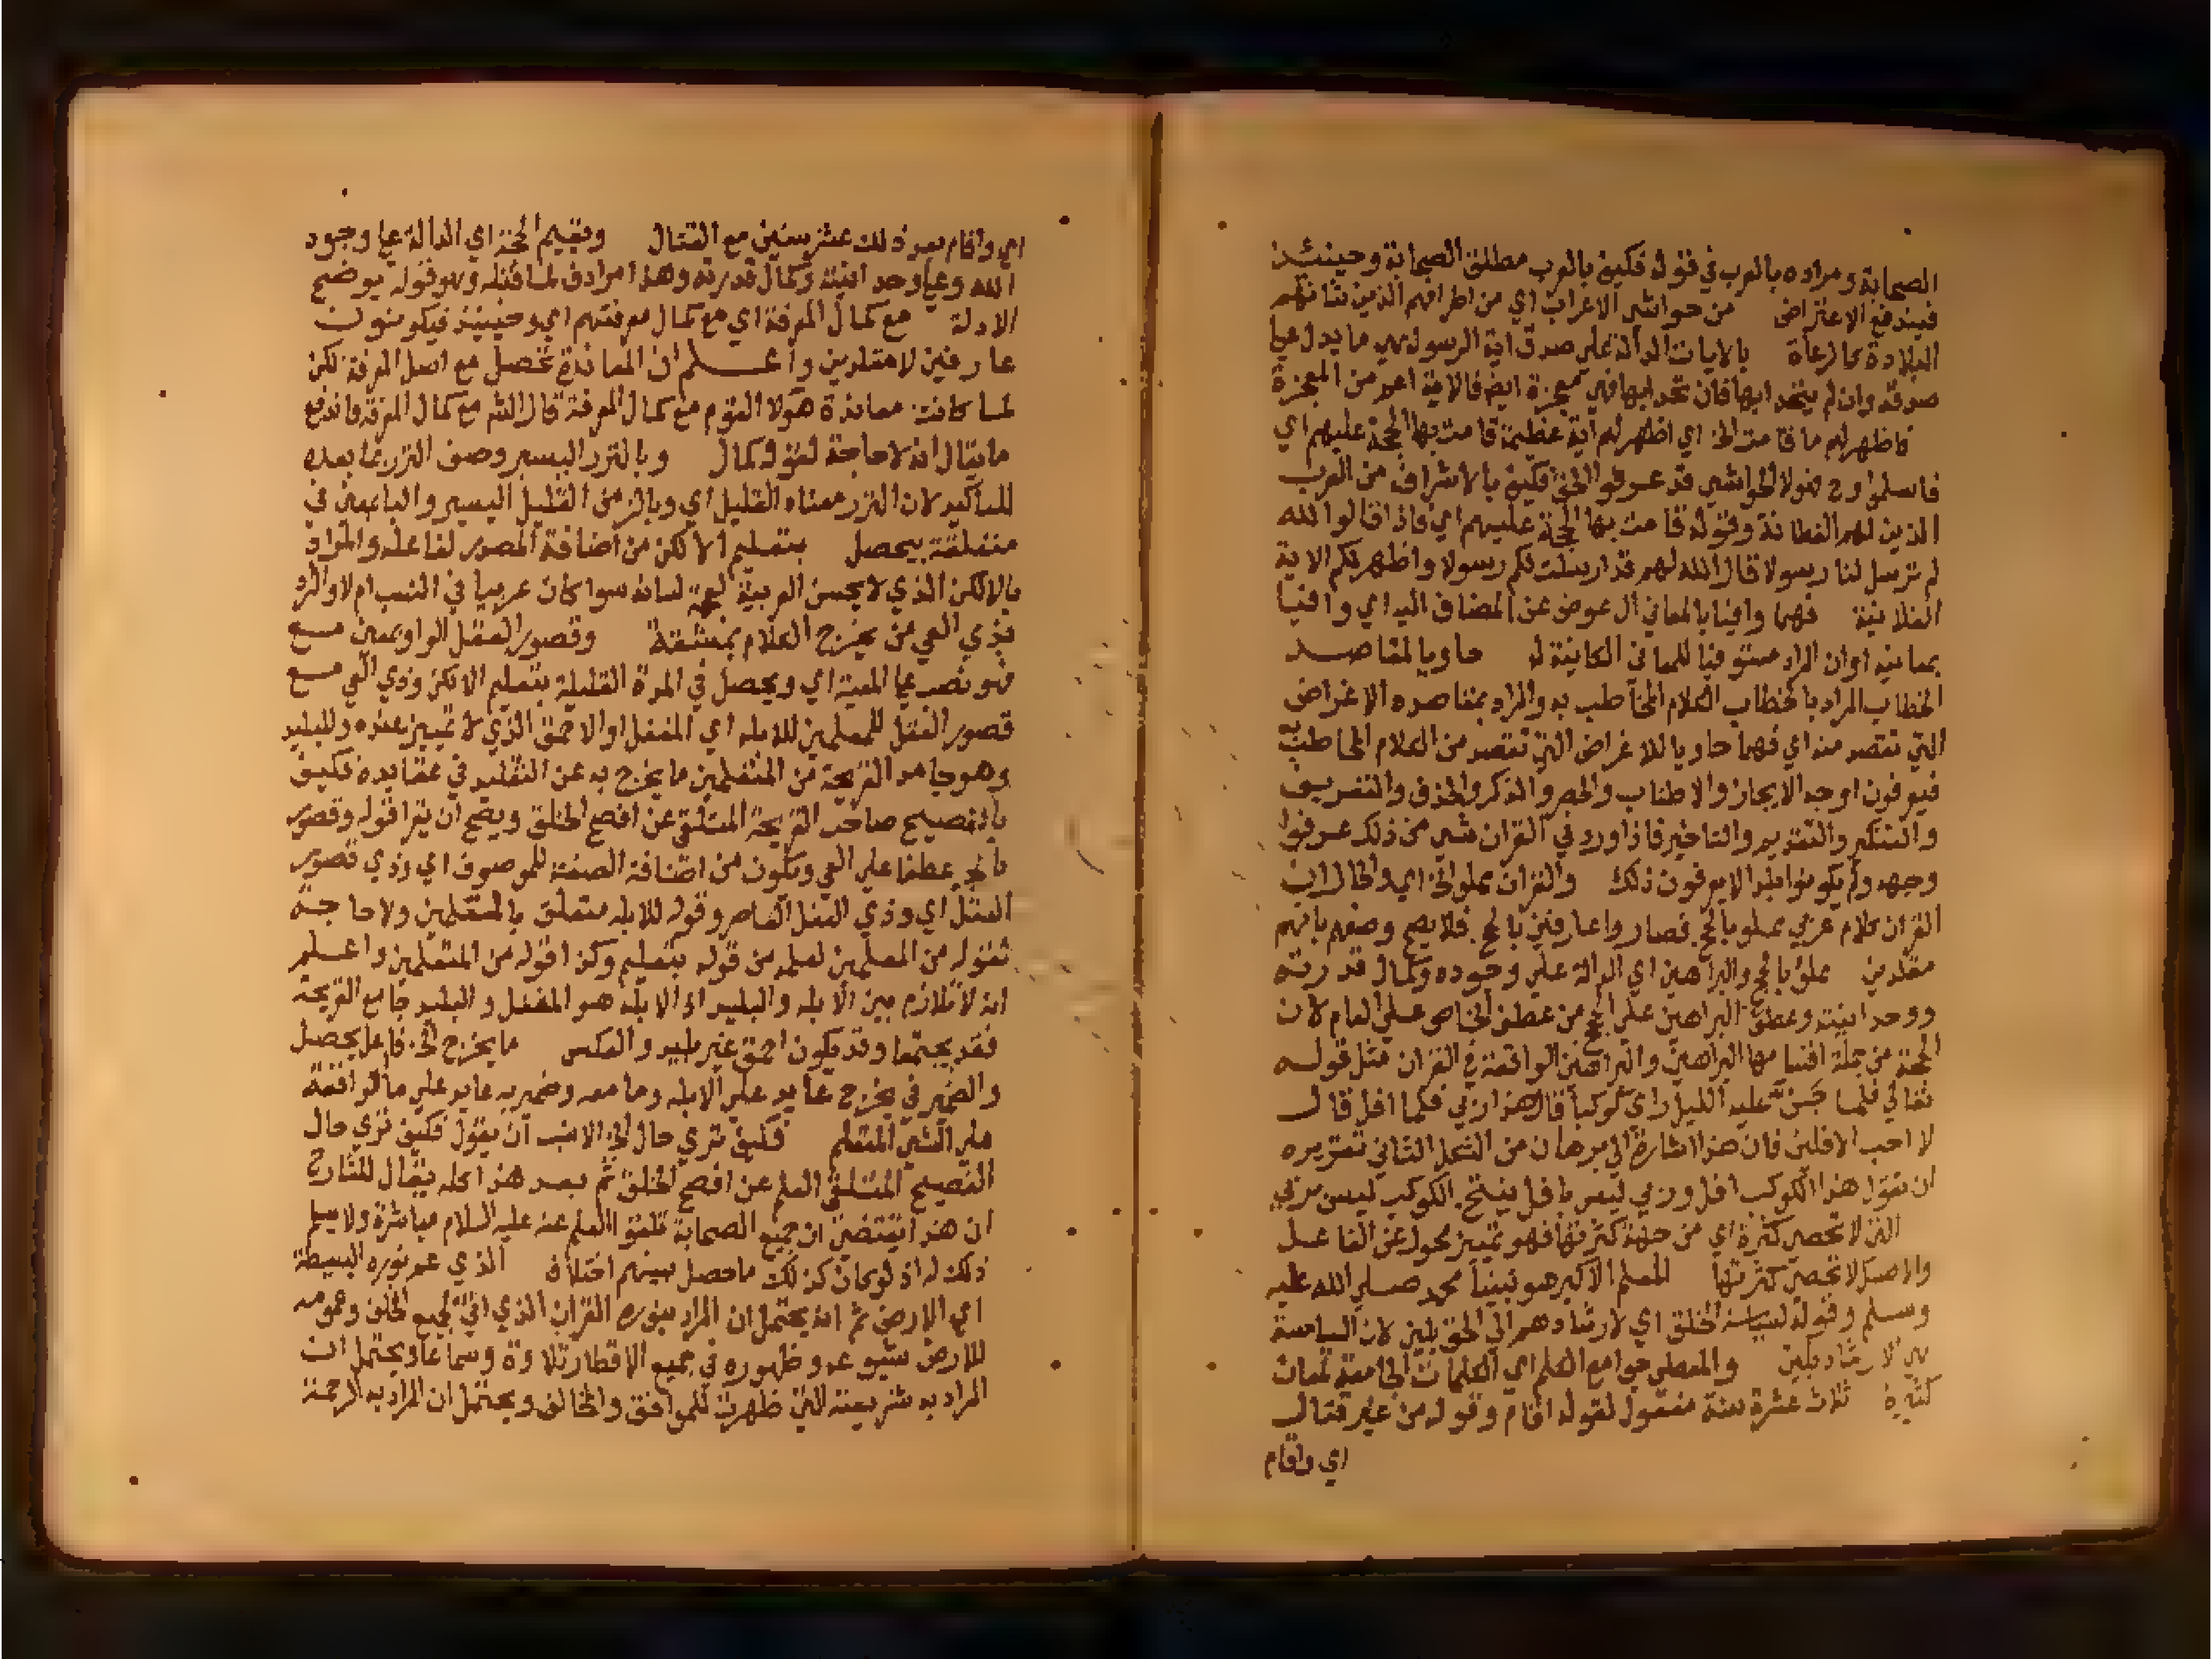 الصحابة ومراده بالعرب في قوله فكيف بالعرب مطلق الصحابة وحينئذ
فيندفع الاعتراض من حواشي الاعراب اي من اطرافهم الذين شانهم
البلادة كالرعاة بالايات الدالة على صدق اية الرسول هي ما يدل على
صدقه وان لم يتحد ابها فان تحد ابها فهي معجزة ايض فالاية اعم من المعجزة
فاظهر لهم ما قامت الخ اي اظهر لهم آية عظيمة قامت بها الحجة عليهم اي
فاسلموا وح هولا الحواشي قد عرفوا الحق فكيف بالاشراف من العرب
الذين لهم الفطانة وقوله قامت بها الحجة عليهم اي فاذا قالوا الله
لم ترسل لنا رسولا قال الله لهم قد ارسلت لكم رسولا واظهر لكم الاية
الفلانية فهما وافيا بالمعاني ال عوض عن المضاف اليه اي وافيا
بمعانيه او ان المراد مستوفيا للمعاني الكاينة له حاويا لمقاصد
الخطاب المراد بالخطاب الكلام المخاطب به والمراد بمقاصده الاغراض
التي تقصد منه اي فهما حاويا للاغراض التي تقصد من الكلام المخاطب به
فيعرفون اوجه الايجاز والاطناب والحصر والذكر والحذف والتعريف
والتنكير والتقديم والتاخير فاذا ورد في القران شي من ذلك عرفوا
وجهه ولم يكونوا بلدا لا يعرفون ذلك والقران مملو الخ اي والحال ان
القران كلام عربي مملو بالحجج فصاروا عارفين بالحجج فلا يصح وصفهم بانهم
مقلدين مملو بالحجج والبراهين اي الدالة على وجوده وكمال قدرته
ووحدانيته وعطف البراهين على الحجج من عطف الخاص على العام لان
الحجة من جملة اقسامها البراهين والبراهين الواقعة في القران مثل قوله
تعالي فلما جن عليه الليل راى كوكبا قال هذا ربي فلما افل قال
لا احب الافلين فان هذا اشارة الي برهان من الشكل الثاني تقريره
ان تقول هذا الكوكب افل وربي ليس بافل ينتج الكوكب ليس بربي
التي لا تحصى كثرة اي من جهة كثرتها فهو تمييز محول عن الفاعل
والاصل لا تحصى كثرتها المعلم الاكبر هو نبينا محمد صلى الله عليه
وسلم وقوله لسياسة الخلق اي لارشادهم الي الحق بلين لان السياسة
هي الارشاد بلين والمعطى جوامع الكلم اي الكلمات الجامعة لمعان
كثيرة ثلاث عشرة سنة مفعول لقوله اقام وقوله من غير قتال
اي واقام
اي واقام بعد ذلك عشر سنين مع القتال ويقيم الحجة اي الدالة على وجود
الله وعلى وحدانيته وكمال قدرته وهذا مرادف لما قبله وهو قوله يوضح
الادلة مع كمال المعرفة اي مع كمال معرفتهم اي وحينئذ فيكونون
عارفين لا مقلدين واعلم ان المعاندة تحصل مع اصل المعرفة لكن
لما كانت معاندة هولا القوم مع كمال المعرفة قال الش مع كمال المعرفة فاندفع
ما يقال انه لا حاجة لقوله كمال وبالنزر اليسير وصف النزر بما بعده
للتاكيد لان النزر معناه القليل اي وبالزمن القليل اليسير والبا بمعنى في
متعلقة بيحصل بتعليم الالكن من اضافة المصدر لفاعله والمراد
بالالكن الذي لا يحسن العربية لعجمة لسانه سوا كان عربيا في النسب ام لا والمراد
بذي العي من يخرج الكلام بمشقة وقصور العقل الواو بمعنى مع
فهو نصب على المعية اي ويحصل في المدة القليلة بتعليم الالكن وذي العي مع
قصور العقل للمعلمين للابله اي المغفل او الاحمق الذي لا تمييز عنده وللبليد
وهو جامد القريحة من المتعلمين ما يخرج به عن التقليد في عقايده فكيف
بالفصيح صاحب القريحة المتلقي عن افصح الخلق ويصح ان يقرا قوله وقصور
بالجر عطفا على العي ويكون من اضافة الصفة للموصوف اي وذي قصور
العقل اي وذي العقل القاصر وقوله للابله متعلق بالمتعلمين ولا حاجة
لقوله من المعلمين لعلمه من قوله بتعليم وكذا قوله من المتعلمين واعلم
انه لا تلازم بين الابله والبليد اذ الابله هو المغفل والبليد جامد القريحة
فقد يجتمعا وقد يكون احمق غير بليد والعكس ما يخرج الخ فاعل يحصل
والضمير في يخرج عايد على الابله وما معه وضمير به عايد على ما الواقعة
على الشي المتعلم فكيف ترى حال الخ الانسب ان يقول فكيف ترى حال
الفصيح المتلقي العلم عن افصح الخلق ثم بعد هذا كله يقال للشارح
ان هذا يقتضي ان جميع الصحابة تلقوا العلم عنه عليه السلام مباشرة ولا يسلم
ذلك له اذ لو كان كذلك ما حصل بينهم اختلاف الذي عم نوره البسيطة
اي الارض ثم انه يحتمل ان المراد بنوره القران الذي اتى لجميع الخلق وعمومه
للارض شيوعه وظهوره في جميع الاقطار تلاوة وسماعا ويحتمل ان
المراد به شريعته التي ظهرت للموافق والمخالف ويحتمل ان المراد به الرحمة